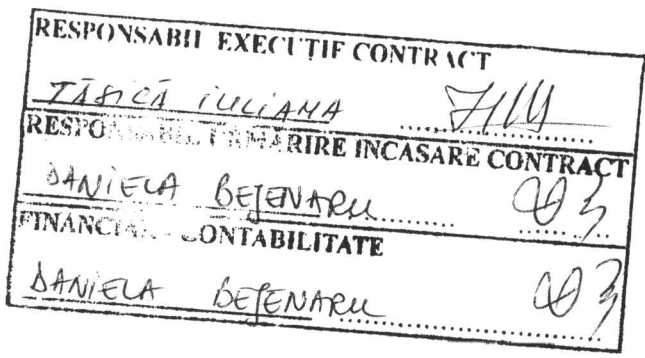 RESPONSABIL EXECUȚIE CONTRACT
TĂSICĂ IULIANA
RESPONSABIL URMĂRIRE INCASARE CONTRACT
DANIELA BEJENARU
FINANCIAR - CONTABILITATE
DANIELA BEJENARU